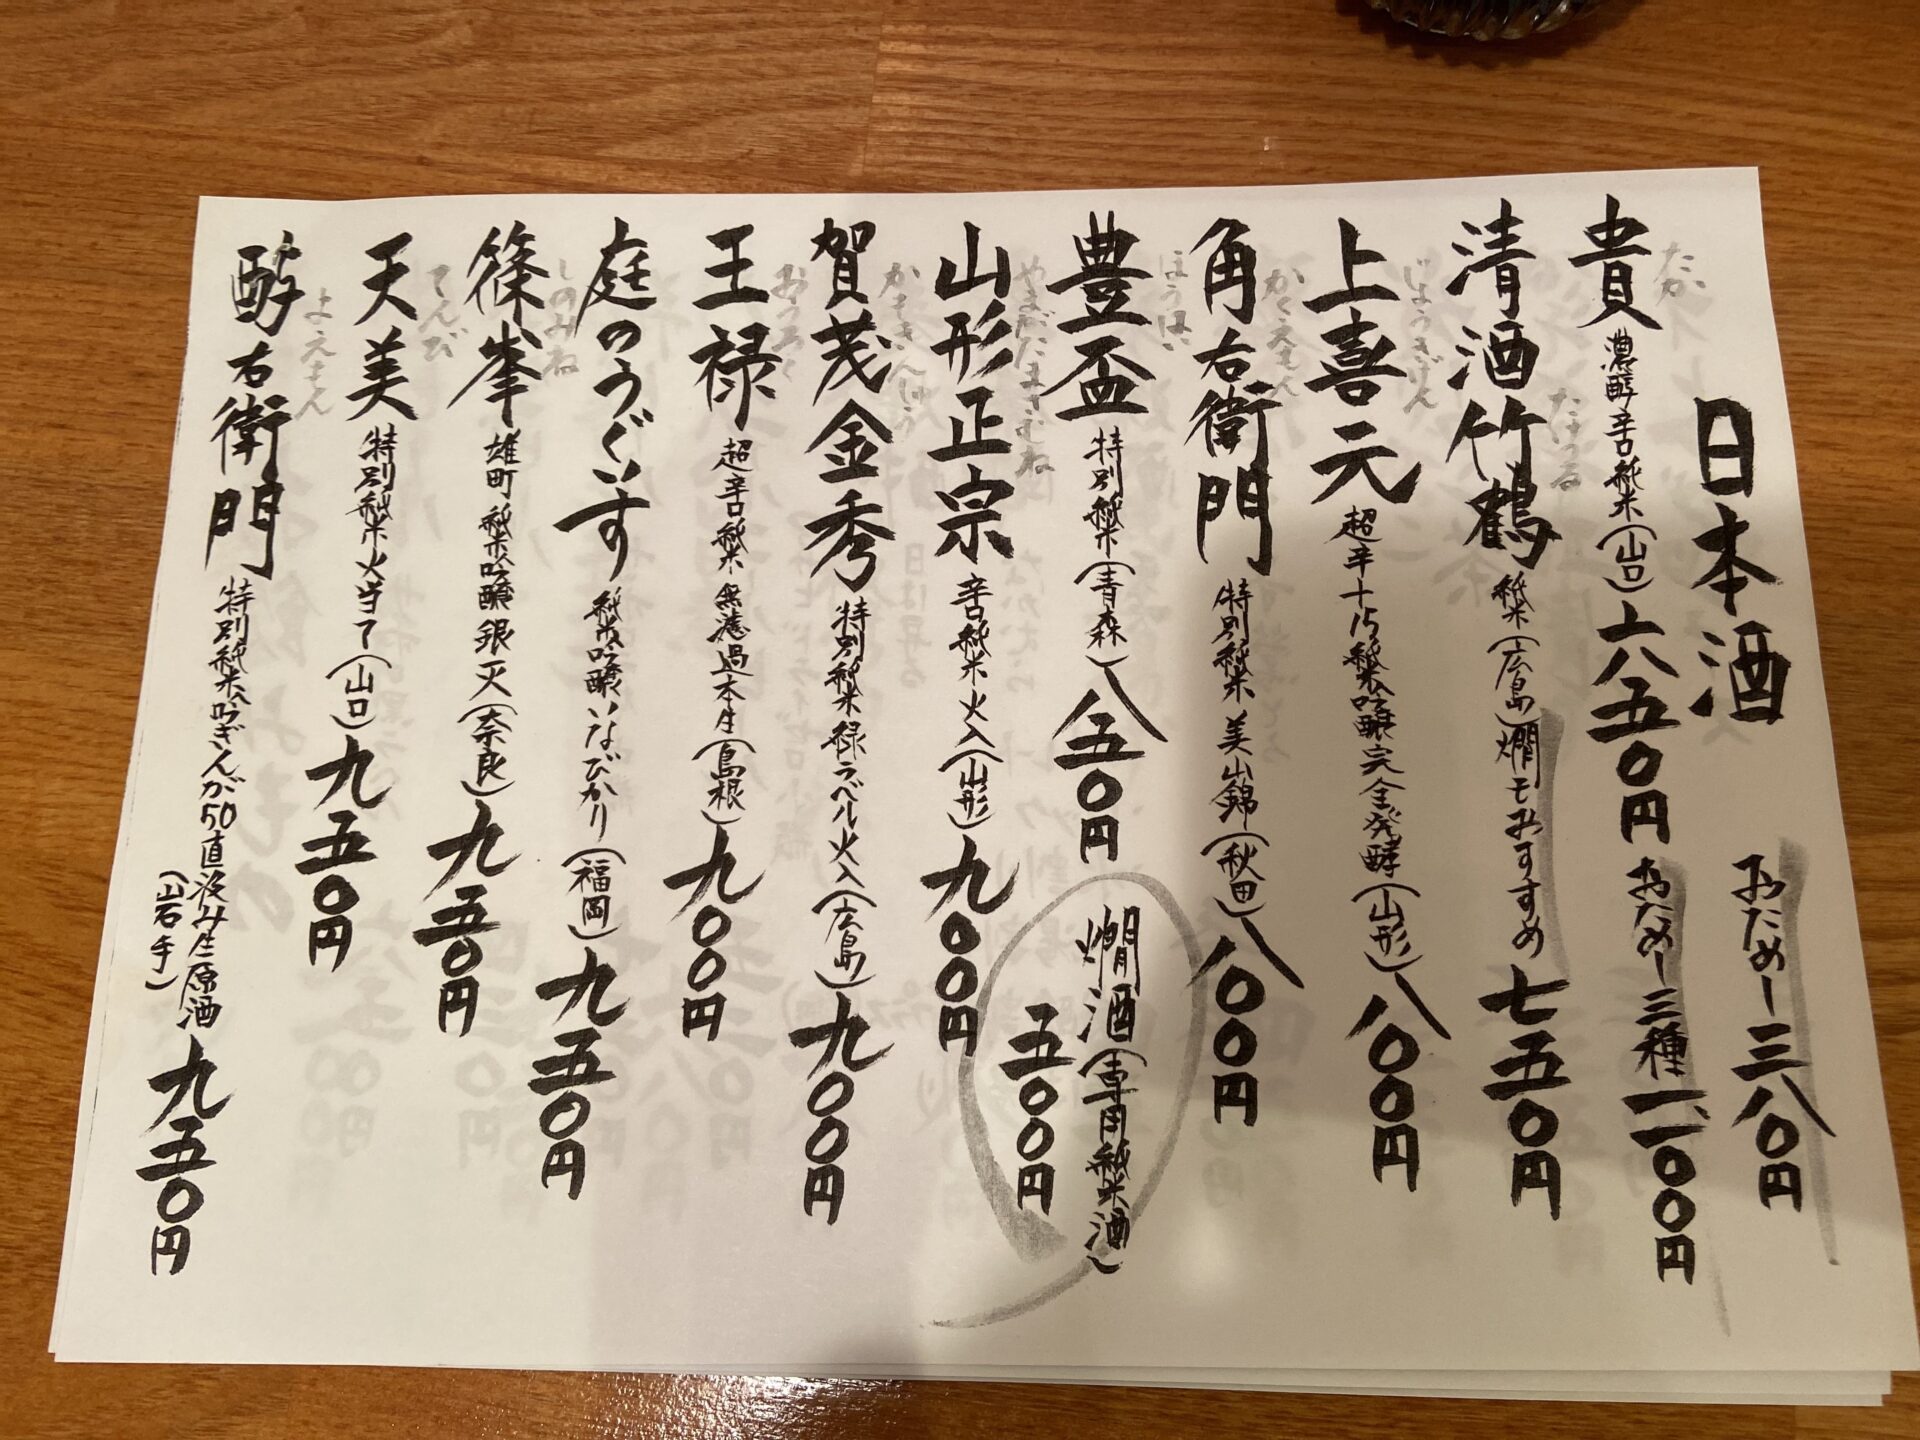 日本酒
おためし三八〇円
おためし三種一、一〇〇円
たか
貴 濃醇辛口純米(山口)六五〇円
たけつる
清酒竹鶴 純米(広島)燗もおすすめ 七五〇円
じょうきげん
上喜元 超辛+15純米吟醸完全発酵(山形)八〇〇円
かくえもん
角右衛門 特別純米 美山錦(秋田)八〇〇円
ほうはい
豊盃 特別純米(青森)八五〇円
燗酒(専用純米酒)
五〇〇円
やまがたまさむね
山形正宗 辛口純米火入(山形)九〇〇円
かもきんしゅう
賀茂金秀 特別純米緑ラベル火入(広島)九〇〇円
おうろく
王祿 超辛口純米 無濾過本生(島根)九〇〇円
庭のうぐいす 純米吟醸いなびかり(福岡)九五〇円
しのみね
篠峯 雄町純米吟醸 銀灭(奈良)九五〇円
てんび
天美 特別純米火当て(山口)九五〇円
よえもん
酉与右衛門 特別純米吟ぎんが50直汲み生原酒 九五〇円
(岩手)